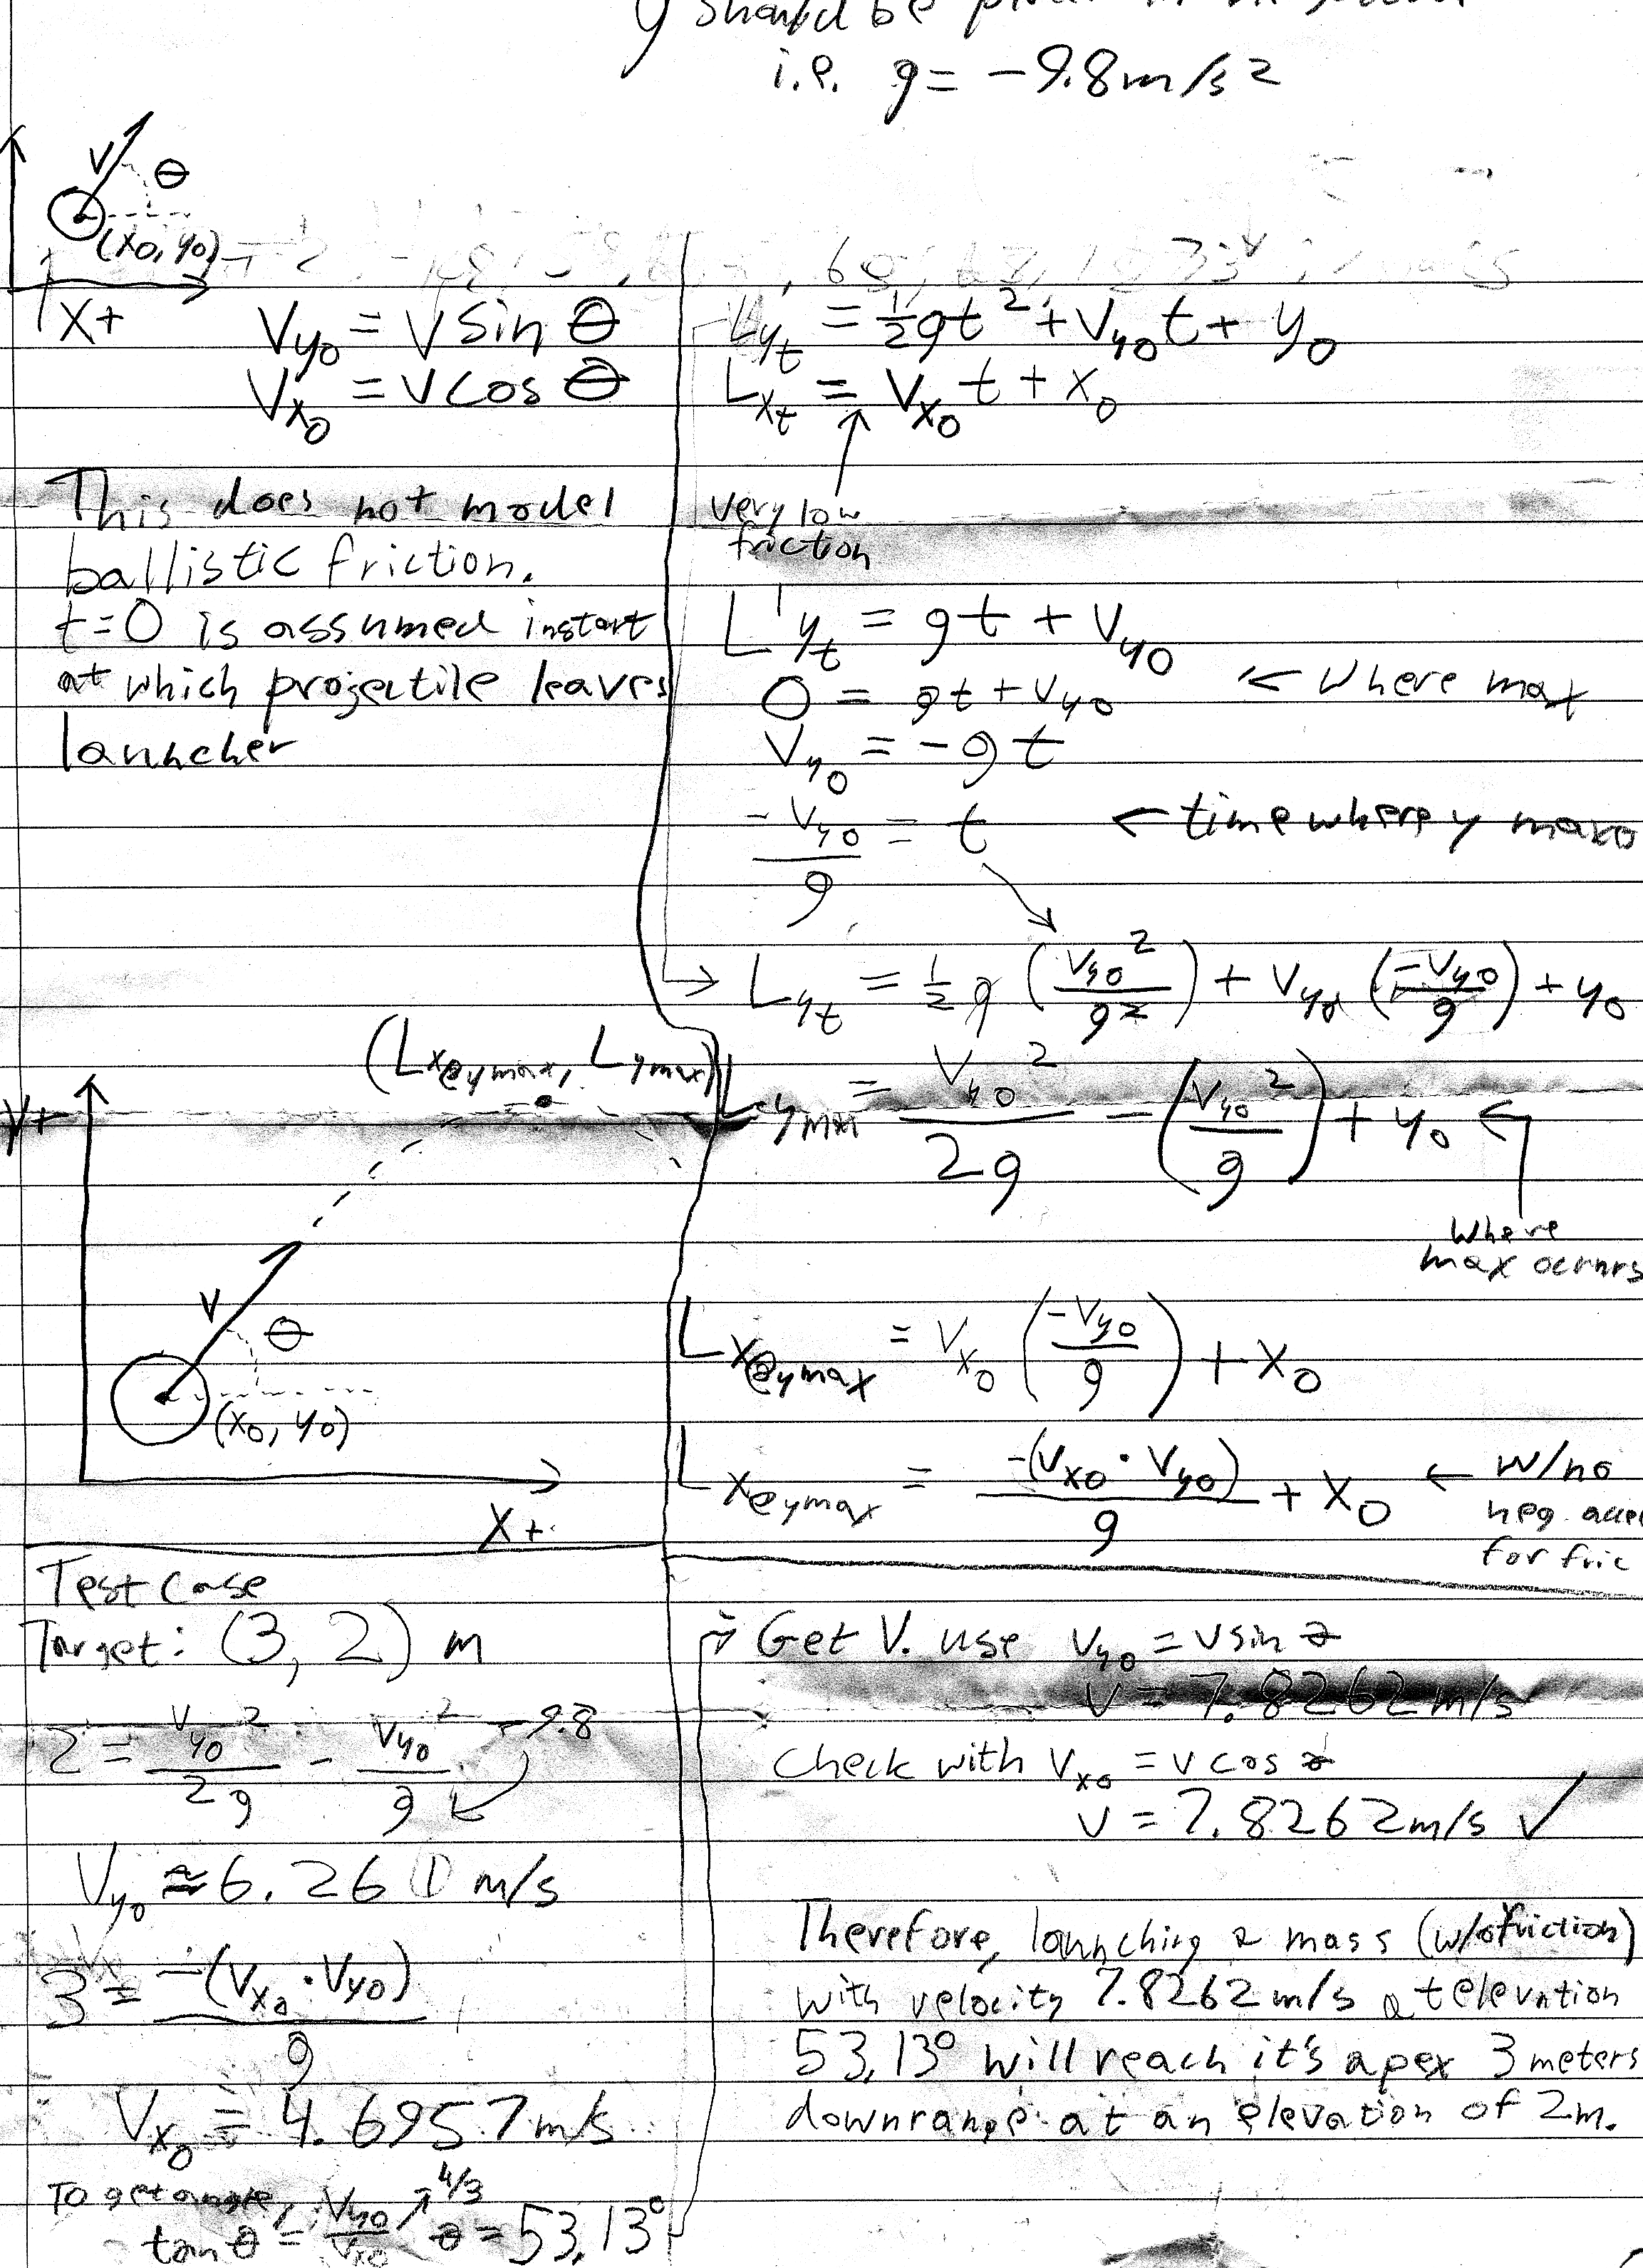 g should be
i.e. g = -9.8 m/s²
V θ
(x₀, y₀)
X+
V_y₀ = V sin θ
V_x₀ = V cos θ
This does not model
ballistic friction.
t=0 is assumed instant
at which projectile leaves
launcher
L_y_t = ½gt² + V_y₀t + y₀
L_x_t = V_x₀t + x₀
very low
friction
L'_y_t = gt + V_y₀
0 = gt + V_y₀ ← where max
V_y₀ = -gt
-V_y₀/g = t ← time where y max
→ L_y_t = ½g (V_y₀²/g²) + V_y₀ (-V_y₀/g) + y₀
L_ymax = V_y₀²/2g - (V_y₀²/g) + y₀ ←
where
max occurs
L_x@ymax = V_x₀ (-V_y₀/g) + x₀
L_x@ymax = -(V_x₀ · V_y₀)/g + x₀ ← w/no
neg. accel
for fric
(L_x@ymax, L_ymax)
y+
V θ
(x₀, y₀)
X+
Test case
Target: (3, 2) m
2 = V_y₀²/2g - V_y₀²/g -9.8
V_y₀ ≈ 6.261 m/s
3 = -(V_x₀ · V_y₀)/g
V_x₀ = 4.6957 m/s
To get angle,
tan θ = V_y₀/V_x₀ 4/3 θ = 53.13°
→ Get V. use V_y₀ = v sin θ
v = 7.8262 m/s
check with V_x₀ = v cos θ
v = 7.8262 m/s ✓
Therefore, launching a mass (w/o friction)
with velocity 7.8262 m/s at elevation
53.13° will reach it's apex 3 meters
downrange at an elevation of 2m.